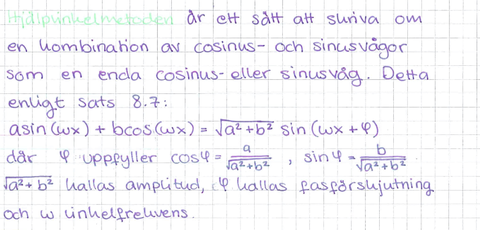 Hjälpvinkelmetoden är ett sätt att skriva om
en kombination av cosinus- och sinusvågor
som en enda cosinus- eller sinusvåg. Detta
enligt sats 8.7:
asin(ωx) + bcos(ωx) = √(a²+b²) sin(ωx + φ)
där φ uppfyller cosφ = a/√(a²+b²) , sinφ = b/√(a²+b²)
√(a²+b²) kallas amplitud, φ kallas fasförskjutning
och ω vinkelfrekvens.